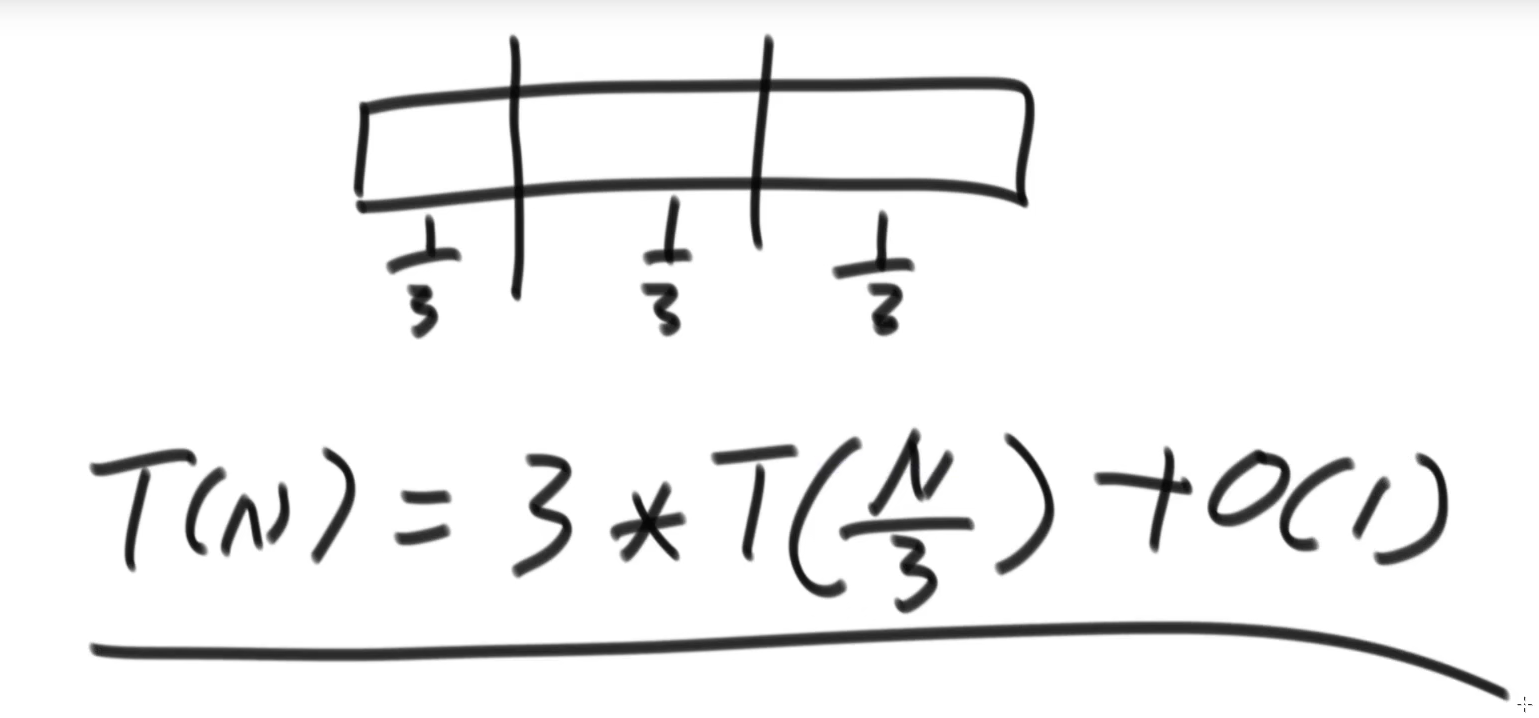 1/3 1/3 1/3
T(N) = 3 * T(N/3) + O(1)